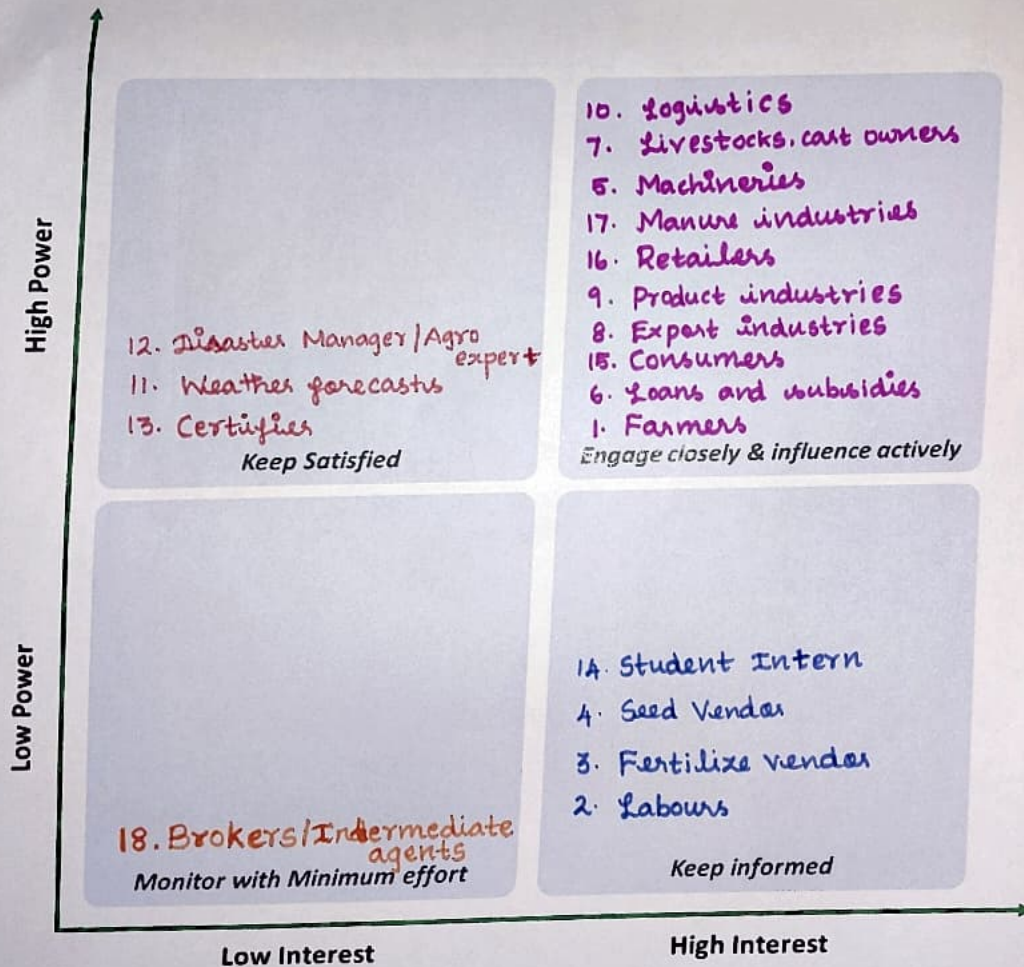 High Power
12. Disaster Manager/Agro
expert
11. Weather forecasts
13. Certifies
Keep Satisfied
10. Logistics
7. Livestocks, cast owners
5. Machineries
17. Manure industries
16. Retailers
9. Product industries
8. Export industries
15. Consumers
6. Loans and subsidies
1. Farmers
Engage closely & influence actively
Low Power
18. Brokers/Indermediate
agents
Monitor with Minimum effort
14. Student Intern
4. Seed Vendor
3. Fertilize vendor
2. Labours
Keep informed
Low Interest
High Interest